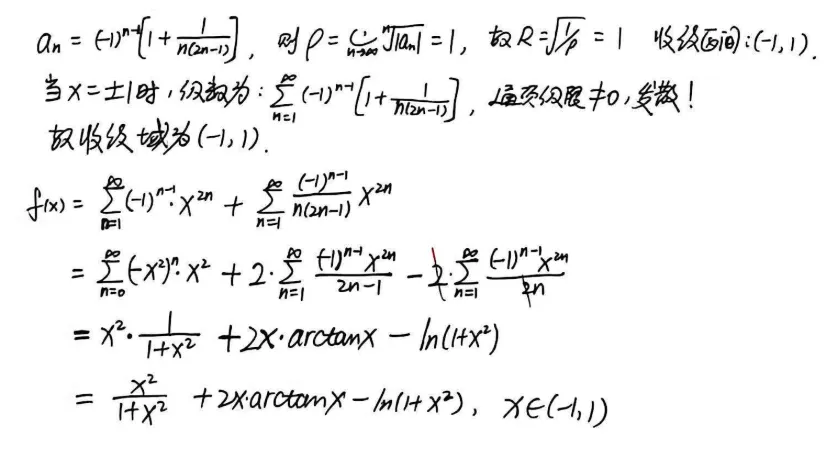 aₙ = (-1)ⁿ⁻¹[1 + 1/(n(2n-1))], 则 ρ = lim_{n→∞} ⁿ√|aₙ| = 1, 故 R = √(1/ρ) = 1 收敛区间:(-1,1).
当 x = ±1 时, 级数为: ∑_{n=1}^{∞} (-1)ⁿ⁻¹[1 + 1/(n(2n-1))], 通项极限 ≠ 0, 发散!
故收敛域为 (-1,1).
f(x) = ∑_{n=1}^{∞} (-1)ⁿ⁻¹·x²ⁿ + ∑_{n=1}^{∞} (-1)ⁿ⁻¹/(n(2n-1)) x²ⁿ
= ∑_{n=0}^{∞} (-x²)ⁿ·x² + 2·∑_{n=1}^{∞} (-1)ⁿ⁻¹x²ⁿ/(2n-1) - 2·∑_{n=1}^{∞} (-1)ⁿ⁻¹x²ⁿ/(2n)
= x²·1/(1+x²) + 2x·arctanx - ln(1+x²)
= x²/(1+x²) + 2x·arctanx - ln(1+x²), x∈(-1,1)